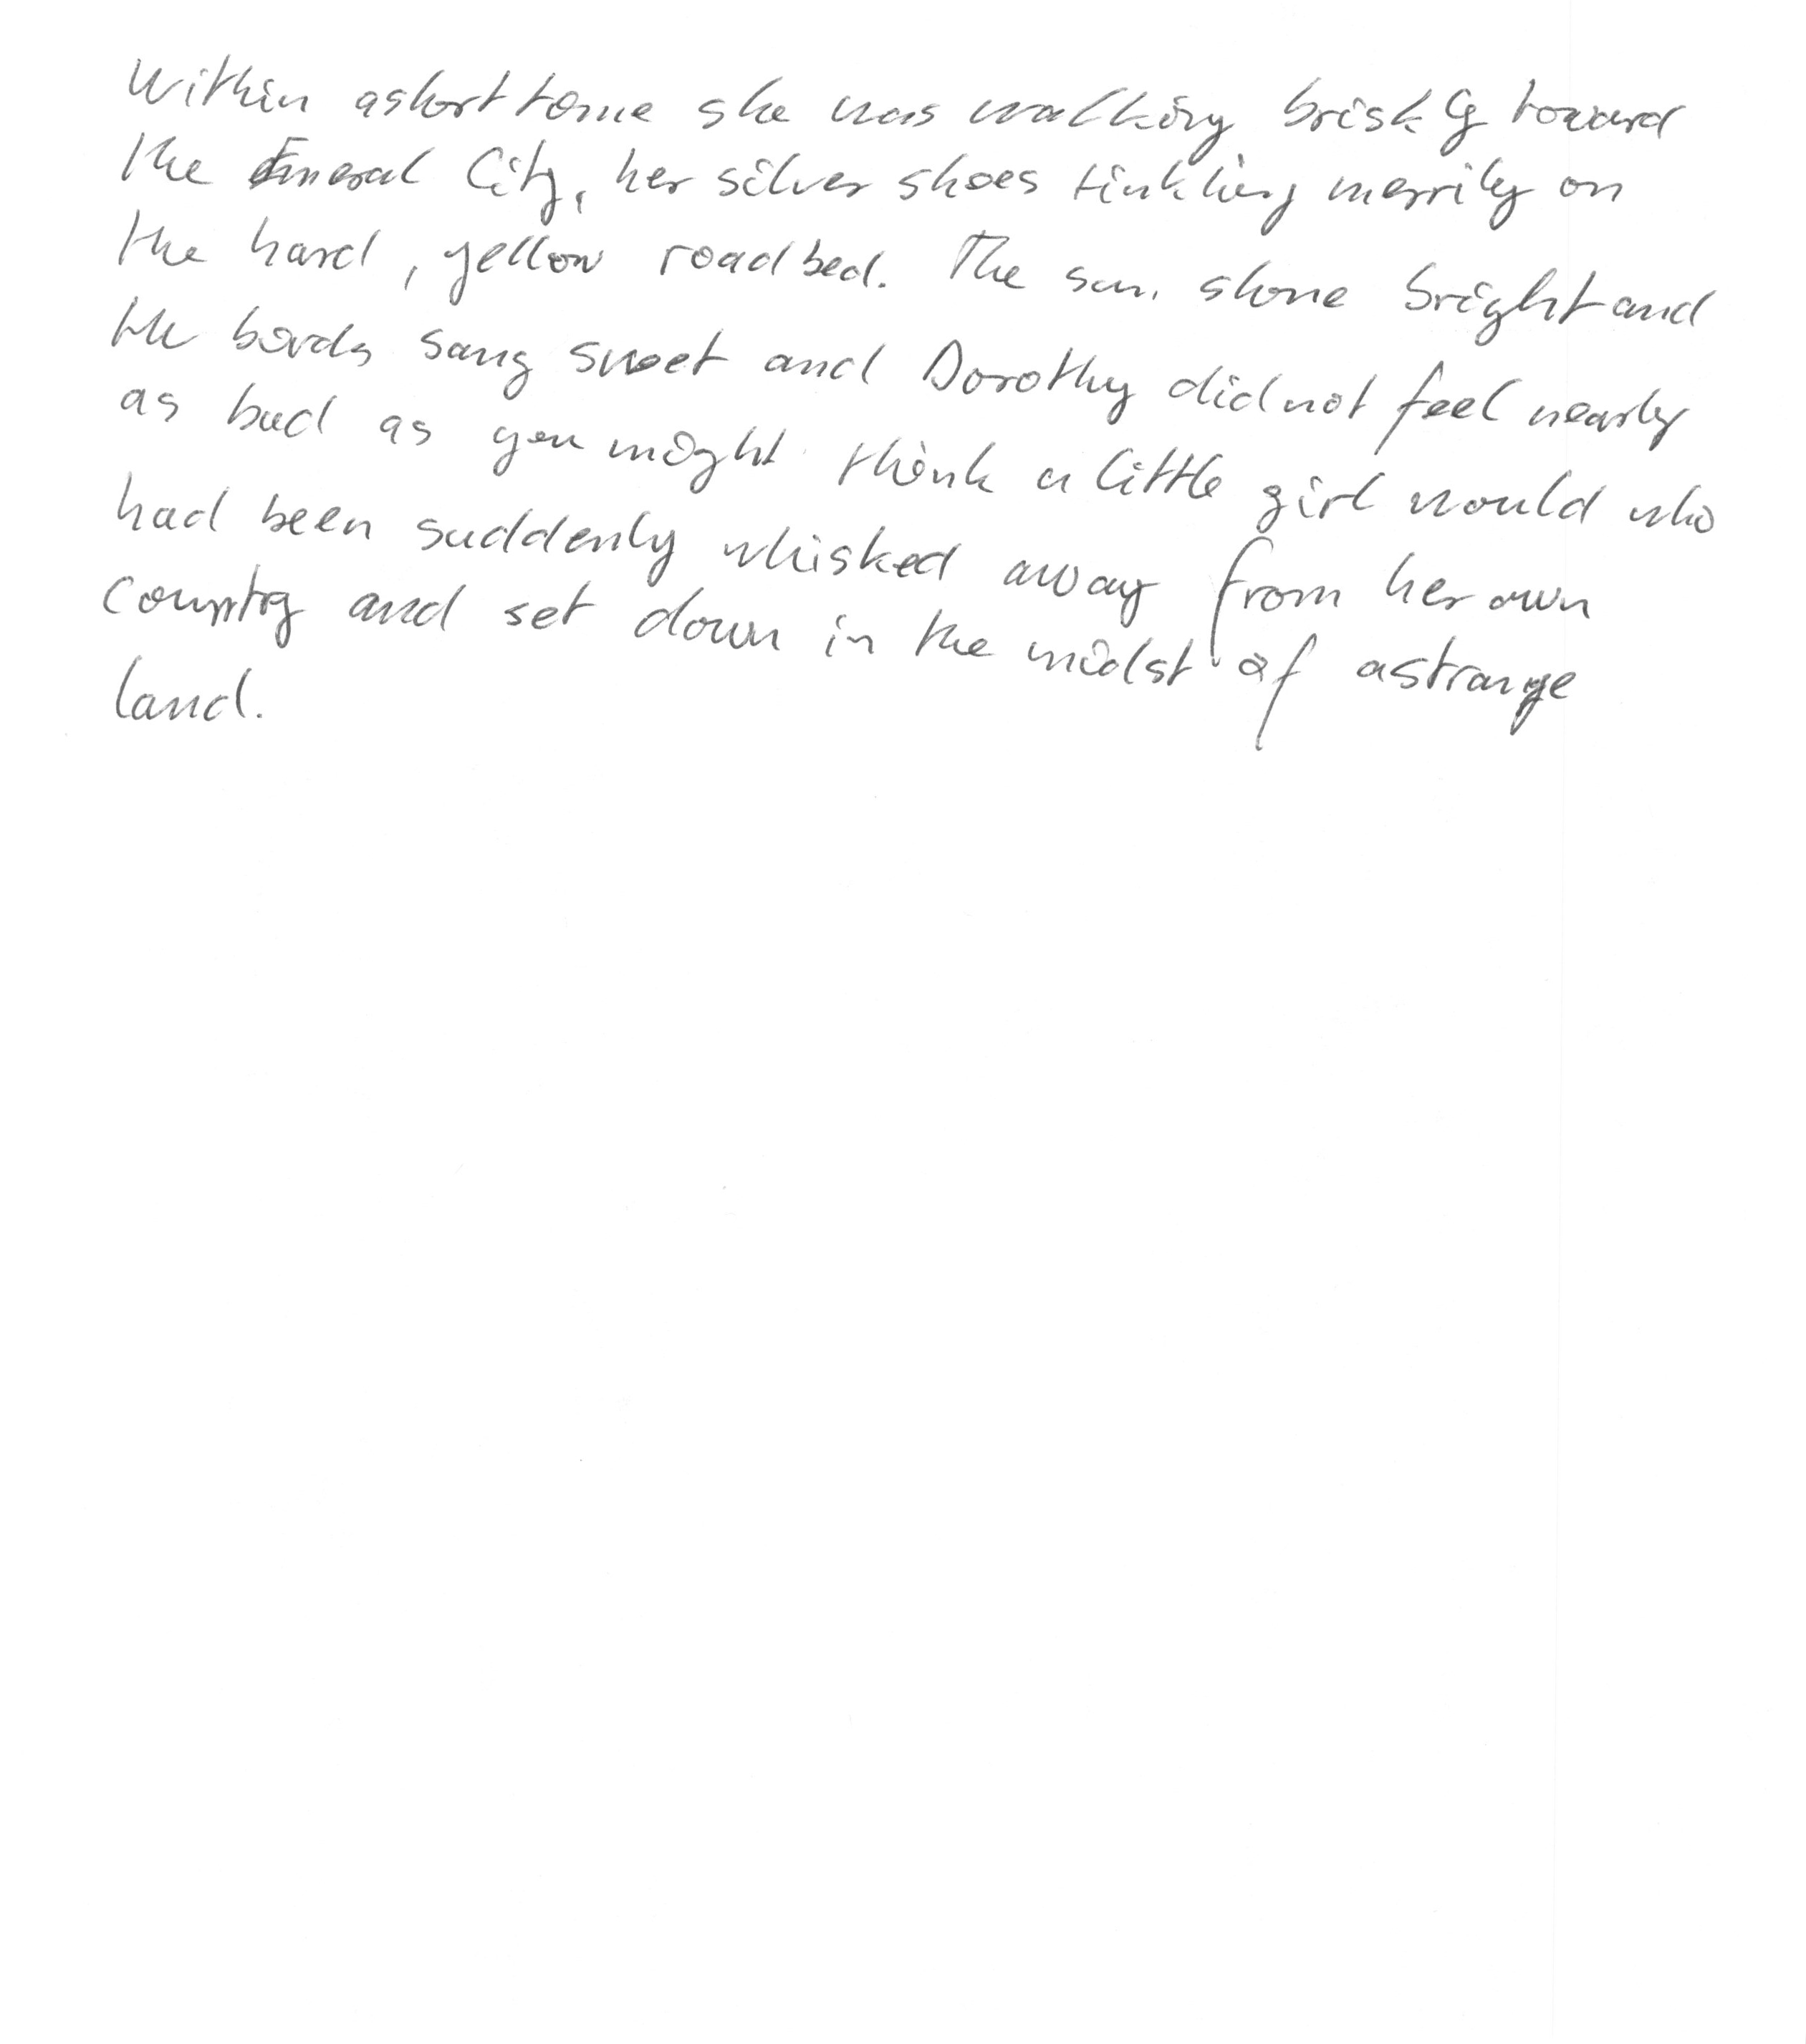 Within a short time she was walking briskly toward
the Emeral City, her silver shoes tinkling merrily on
the hard, yellow roadbed. The sun shone bright and
the birds sang sweet and Dorothy did not feel nearly
as bad as you might think a little girl would who
had been suddenly whisked away from her own
country and set down in the midst of a strange
land.